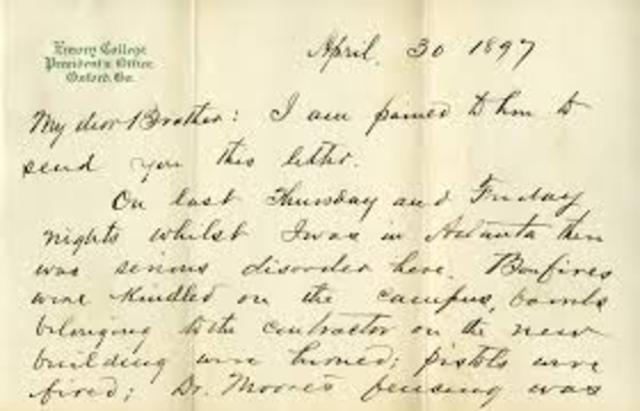 Emory College
President's Office
Oxford, Ga.
April 30 1897
My dear Brother: I am pained to have to
send you this letter.
On last Thursday and Friday
nights whilst I was in Atlanta there
was serious disorder here. Bonfires
were kindled on the campus,
belonging to the contractor on the new
building were burned; pistols were
fired; Dr. Moore's fencing was